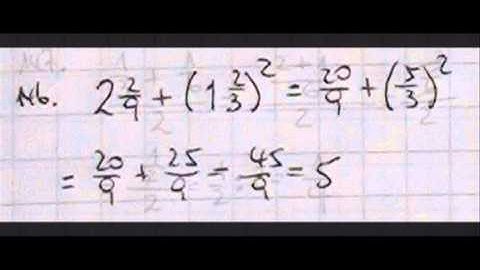 №6. 2 2/9 + (1 2/3)^2 = 20/9 + (5/3)^2
= 20/9 + 25/9 = 45/9 = 5